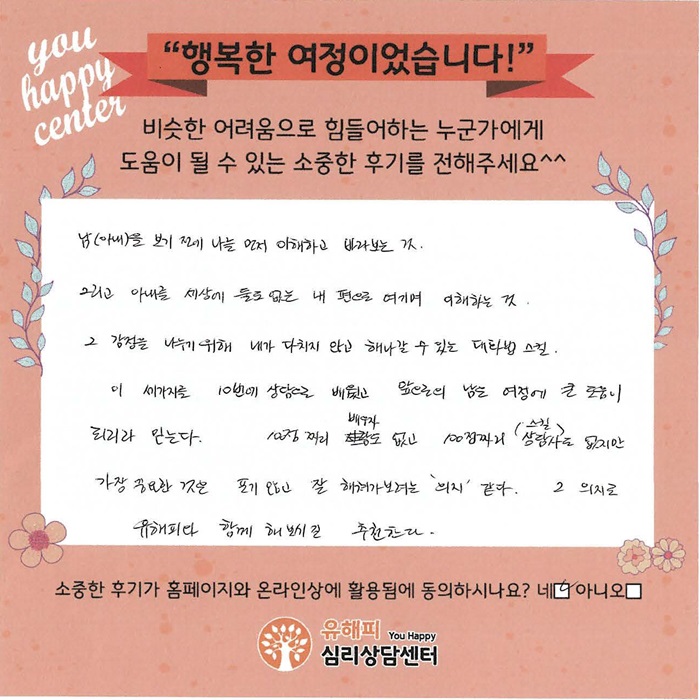 you
happy
center
“행복한 여정이었습니다!”
비슷한 어려움으로 힘들어하는 누군가에게
도움이 될 수 있는 소중한 후기를 전해주세요^^
남(아내)을 보기 전에 나를 먼저 이해하고 바라보는 것.
그리고 아내를 세상에 둘도 없는 내 편으로 여기며 이해하는 것.
그 감정을 나누기 위해 내가 다치지 않고 해나갈 수 있는 대화법 스킬.
이 세가지를 10번에 상담으로 배웠고 앞으로의 남은 여정에 큰 도움이
되리라 믿는다. 10점 짜리 배우자도 없고 100점짜리 상담사(스킬)도 없지만
가장 중요한 것은 포기 않고 잘 해쳐가보려는 '의지' 같다. 그 의지로
유해피와 함께 해보시길 추천한다.
소중한 후기가 홈페이지와 온라인상에 활용됨에 동의하시나요? 네☑ 아니오□
유해피 You Happy
심리상담센터